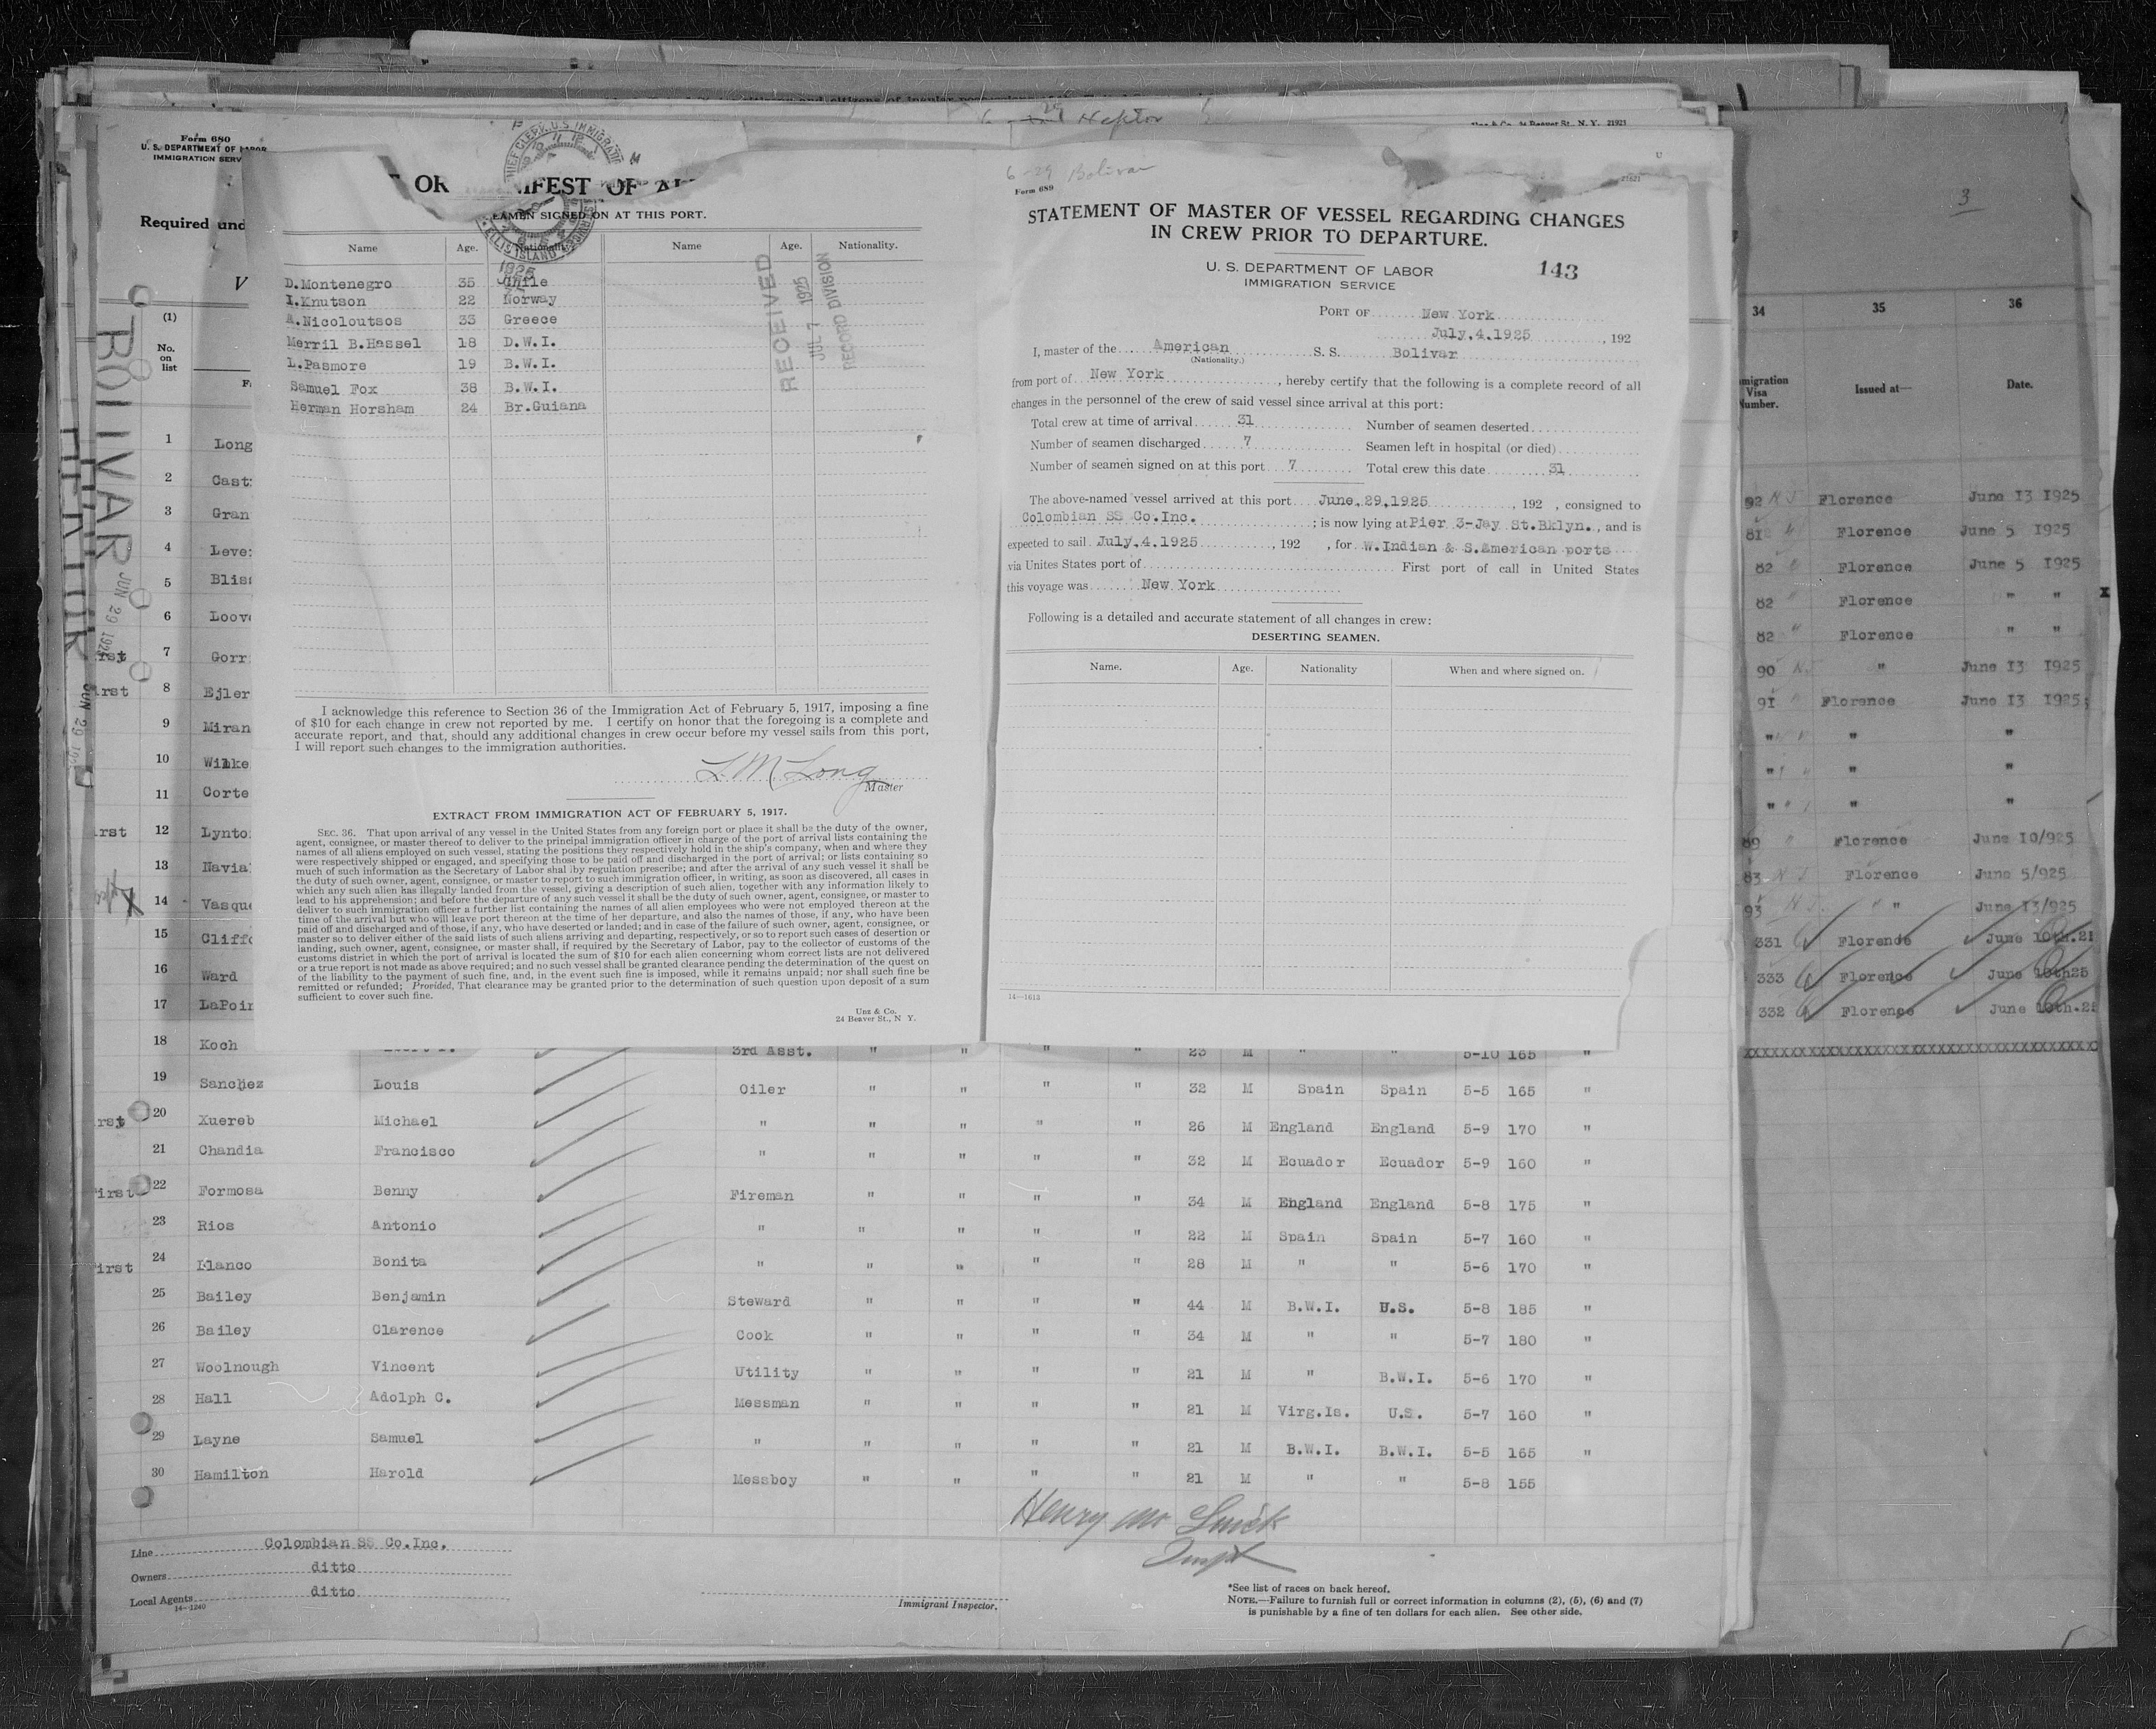 Form 680
U. S. DEPARTMENT OF LABOR
IMMIGRATION SERV
Required und
V
(1)
No.
on
list
BOLIVAR
JUN 29 192
1 Long
2 Cast
3 Gran
4 Leve
5 Blis
6 Loov
7 Gorr
8 Ejler
9 Miran
10 Wilke
11 Corte
12 Lynto
13 Navia
14 Vasque
15 Cliffo
16 Ward
17 LaPoin
OR
IFEST OF
SEAMEN SIGNED ON AT THIS PORT.
Name Age. Nationality. Name Age. Nationality.
D.Montenegro 35 Chile
I.Knutson 22 Norway
A.Nicoloutsos 33 Greece
Merril B.Hassel 18 D.W.I.
L.Pasmore 19 B.W.I.
Samuel Fox 38 B.W.I.
Herman Horsham 24 Br.Guiana
RECEIVED
JUL 7 1925
RECORD DIVISION
I acknowledge this reference to Section 36 of the Immigration Act of February 5, 1917, imposing a fine
of $10 for each change in crew not reported by me. I certify on honor that the foregoing is a complete and
accurate report, and that, should any additional changes in crew occur before my vessel sails from this port,
I will report such changes to the immigration authorities.
L. M. Long
Master
EXTRACT FROM IMMIGRATION ACT OF FEBRUARY 5, 1917.
SEC. 36. That upon arrival of any vessel in the United States from any foreign port or place it shall be the duty of the owner,
agent, consignee, or master thereof to deliver to the principal immigration officer in charge of the port of arrival lists containing the
names of all aliens employed on such vessel, stating the positions they respectively hold in the ship's company, when and where they
were respectively shipped or engaged, and specifying those to be paid off and discharged in the port of arrival; or lists containing so
much of such information as the Secretary of Labor shal lby regulation prescribe; and after the arrival of any such vessel it shall be
the duty of such owner, agent, consignee, or master to report to such immigration officer, in writing, as soon as discovered, all cases in
which any such alien has illegally landed from the vessel, giving a description of such alien, together with any information likely to
lead to his apprehension; and before the departure of any such vessel it shall be the duty of such owner, agent, consignee, or master to
deliver to such immigration officer a further list containing the names of all alien employees who were not employed thereon at the
time of the arrival but who will leave port thereon at the time of her departure, and also the names of those, if any, who have been
paid off and discharged and of those, if any, who have deserted or landed; and in case of the failure of such owner, agent, consignee, or
master so to deliver either of the said lists of such aliens arriving and departing, respectively, or so to report such cases of desertion or
landing, such owner, agent, consignee, or master shall, if required by the Secretary of Labor, pay to the collector of customs of the
customs district in which the port of arrival is located the sum of $10 for each alien concerning whom correct lists are not delivered
or a true report is not made as above required; and no such vessel shall be granted clearance pending the determination of the quest on
of the liability to the payment of such fine, and, in the event such fine is imposed, while it remains unpaid; nor shall such fine be
remitted or refunded; Provided, That clearance may be granted prior to the determination of such question upon deposit of a sum
sufficient to cover such fine.
Unz & Co.
24 Beaver St., N Y.
6-29 Bolivar
Form 689
21621
STATEMENT OF MASTER OF VESSEL REGARDING CHANGES
IN CREW PRIOR TO DEPARTURE.
U. S. DEPARTMENT OF LABOR
IMMIGRATION SERVICE
143
PORT OF New York
July.4.1925, 192
I, master of the American S. S. Bolivar
(Nationality.)
from port of New York, hereby certify that the following is a complete record of all
changes in the personnel of the crew of said vessel since arrival at this port:
Total crew at time of arrival 31 Number of seamen deserted
Number of seamen discharged 7 Seamen left in hospital (or died)
Number of seamen signed on at this port 7 Total crew this date 31
The above-named vessel arrived at this port June.29.1925, 192 , consigned to
Colombian SS Co.Inc. ; is now lying at Pier 3-Jay St.Bklyn., and is
expected to sail July.4.1925, 192 , for W.Indian & S.American ports
via Unites States port of First port of call in United States
this voyage was New York
Following is a detailed and accurate statement of all changes in crew:
DESERTING SEAMEN.
Name. Age. Nationality When and where signed on.
14—1613
3
34 35 36
migration
Visa
Number. Issued at— Date.
92 N J Florence June 13 1925
812 " Florence June 5 1925
82 " Florence June 5 1925
82 " Florence " "
82 " Florence " "
90 N. " June 13 1925
91 " Florence June 13 1925
" " "
" " "
" " "
89 " Florence June 10/925
83 N J Florence June 5/925
93 N J. " " June 13/925
331 Florence June 10th.25
333 Florence June 10th25
332 Florence June 10th.25
18 Koch 3rd Asst. " " " " 23 M " " 5-10 165 "
19 Sanchez Louis Oiler " " " " 32 M Spain Spain 5-5 165 "
20 Xuereb Michael " " " " " 26 M England England 5-9 170 "
21 Chandia Francisco " " " " " 32 M Ecuador Ecuador 5-9 160 "
22 Formosa Benny Fireman " " " " 34 M England England 5-8 175 "
23 Rios Antonio " " " " " 22 M Spain Spain 5-7 160 "
24 Llanco Bonita " " " " " 28 M " " 5-6 170 "
25 Bailey Benjamin Steward " " " " 44 M B.W.I. U.S. 5-8 185 "
26 Bailey Clarence Cook " " " " 34 M " " 5-7 180 "
27 Woolnough Vincent Utility " " " " 21 M " B.W.I. 5-6 170 "
28 Hall Adolph C. Messman " " " " 21 M Virg.Is. U.S. 5-7 160 "
29 Layne Samuel " " " " " 21 M B.W.I. B.W.I. 5-5 165 "
30 Hamilton Harold Messboy " " " " 21 M " " 5-8 155
Line Colombian SS Co.Inc.
Owners ditto
Local Agents ditto
14—1240
Immigrant Inspector.
*See list of races on back hereof.
NOTE.—Failure to furnish full or correct information in columns (2), (5), (6) and (7)
is punishable by a fine of ten dollars for each alien. See other side.